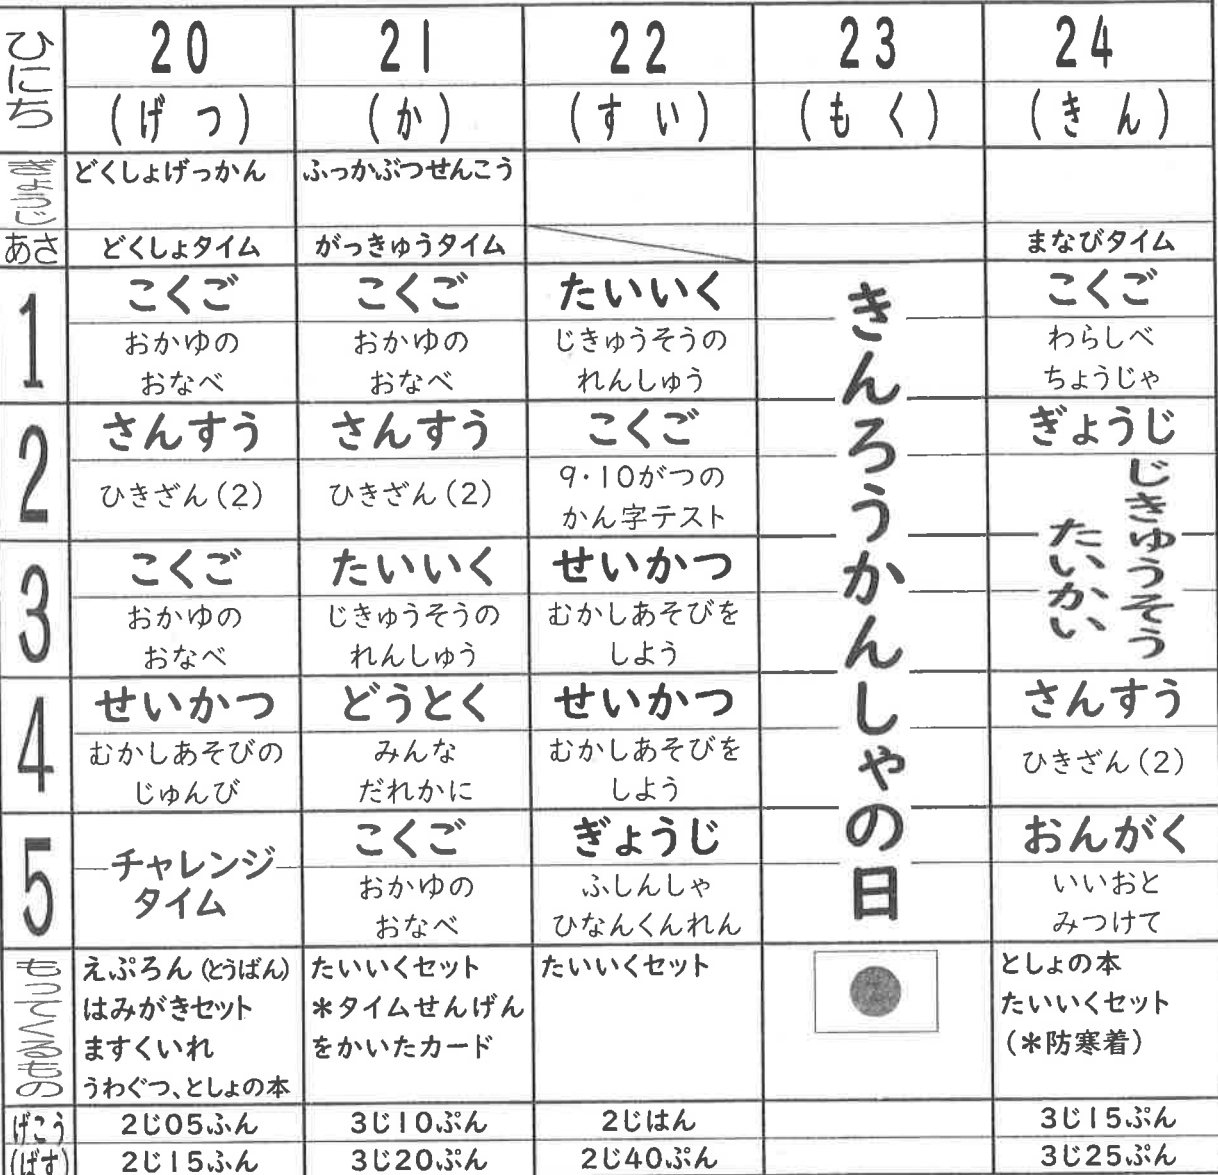 ひにち
20
21
22
23
24
(げつ)
(か)
(すい)
(もく)
(きん)
ぎょうじ
どくしょげっかん
ふっかぶつせんこう
あさ
どくしょタイム
がっきゅうタイム
まなびタイム
1
こくご
おかゆの
おなべ
こくご
おかゆの
おなべ
たいいく
じきゅうそうの
れんしゅう
きんろうかんしゃの日
こくご
わらしべ
ちょうじゃ
2
さんすう
ひきざん(2)
さんすう
ひきざん(2)
こくご
9・10がつの
かん字テスト
ぎょうじ
じきゅうそう
たいかい
3
こくご
おかゆの
おなべ
たいいく
じきゅうそうの
れんしゅう
せいかつ
むかしあそびを
しよう
4
せいかつ
むかしあそびの
じゅんび
どうとく
みんな
だれかに
せいかつ
むかしあそびを
しよう
さんすう
ひきざん(2)
5
チャレンジ
タイム
こくご
おかゆの
おなべ
ぎょうじ
ふしんしゃ
ひなんくんれん
おんがく
いいおと
みつけて
もってくるもの
えぷろん(とうばん)
はみがきセット
ますくいれ
うわぐつ、としょの本
たいいくセット
*タイムせんげん
をかいたカード
たいいくセット
としょの本
たいいくセット
(*防寒着)
げこう
2じ05ふん
3じ10ぷん
2じはん
3じ15ぷん
(ばす)
2じ15ふん
3じ20ぷん
2じ40ぷん
3じ25ぷん